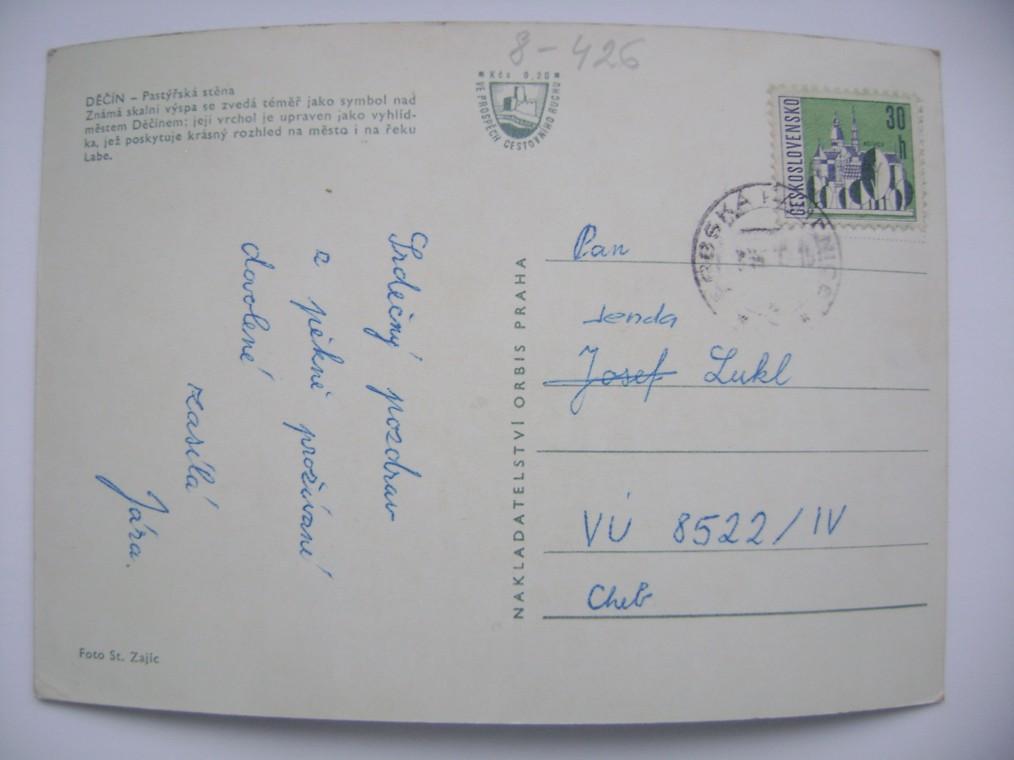 8-426
DĚČÍN – Pastýřská stěna
Známá skalní výspa se zvedá téměř jako symbol nad
městem Děčínem; její vrchol je upraven jako vyhlíd-
ka, jež poskytuje krásný rozhled na město i na řeku
Labe.
Kčs 0,20
VE PROSPĚCH CESTOVNÍHO RUCHU
ČESKOSLOVENSKO
30
h
Srdečný pozdrav
a pěkné prožívání
dovolené
zasílá
Jára.
NAKLADATELSTVÍ ORBIS PRAHA
Pan
Jenda
Josef Lukl
VÚ 8522/IV
Cheb
Foto St. Zajíc